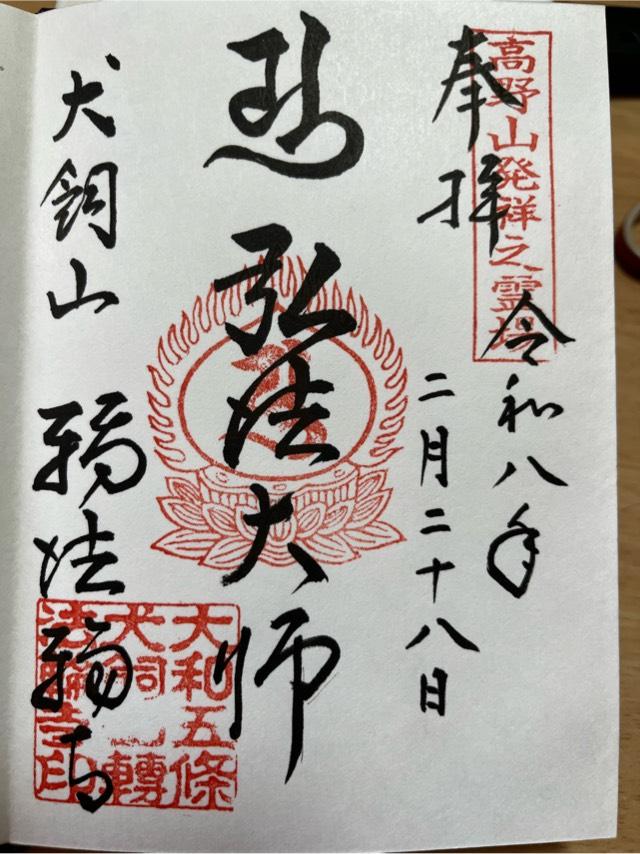 高野山発祥之霊場
奉拝
令和八年
二月二十八日
弘法大師
犬飼山 轉法輪寺
大和五條
犬飼山轉
法輪寺印